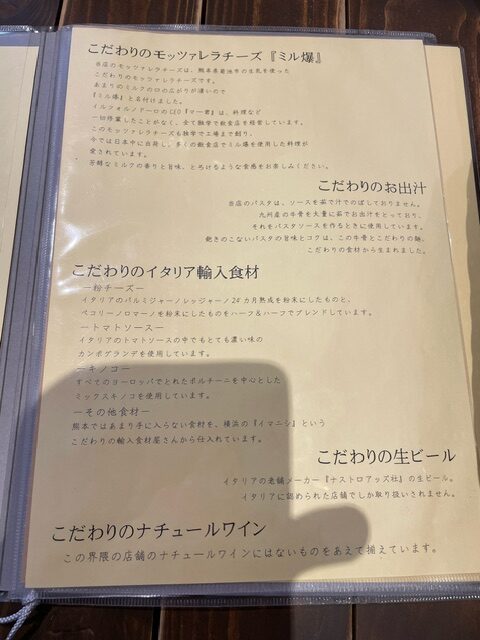 こだわりのモッツァレラチーズ『ミル爆』
当店のモッツァレラチーズは、熊本県菊池市の生乳を使った
こだわりのモッツァレラチーズです。
あまりのミルクの口の広がりが凄いので
『ミル爆』と名付けました。
イルフォルノドーロのCEO『マー君』は、料理など
一切修業したことがなく、全て独学で飲食店を経営しています。
このモッツァレラチーズも独学で工場まで創り、
今では日本中に出荷し、多くの飲食店でミル爆を使用した料理が
愛されています。
芳醇なミルクの香りと旨味、とろけるような食感をお楽しみください。
こだわりのお出汁
当店のパスタは、ソースを茹で汁でのばしておりません。
九州産の牛骨を大量に茹でお出汁をとっており、
それをパスタソースを作るときに使用しています。
飽きのこないパスタの旨味とコクは、この牛骨とこだわりの麺、
こだわりの食材から生まれました。
こだわりのイタリア輸入食材
ー粉チーズー
イタリアのパルミジャーノレッジャーノ24カ月熟成を粉末にしたものと、
ペコリーノロマーノを粉末にしたものをハーフ&ハーフでブレンドしています。
ートマトソースー
イタリアのトマトソースの中でもとても濃い味の
カンポグランデを使用しています。
ーキノコー
すべてのヨーロッパでとれたポルチーニを中心とした
ミックスキノコを使用しています。
ーその他食材ー
熊本ではあまり手に入らない食材を、横浜の『イマニシ』という
こだわりの輸入食材屋さんから仕入れています。
こだわりの生ビール
イタリアの老舗メーカー『ナストロアッズ社』の生ビール。
イタリアに認められた店舗でしか取り扱いされません。
こだわりのナチュールワイン
この界隈の店舗のナチュールワインにはないものをあえて揃えています。